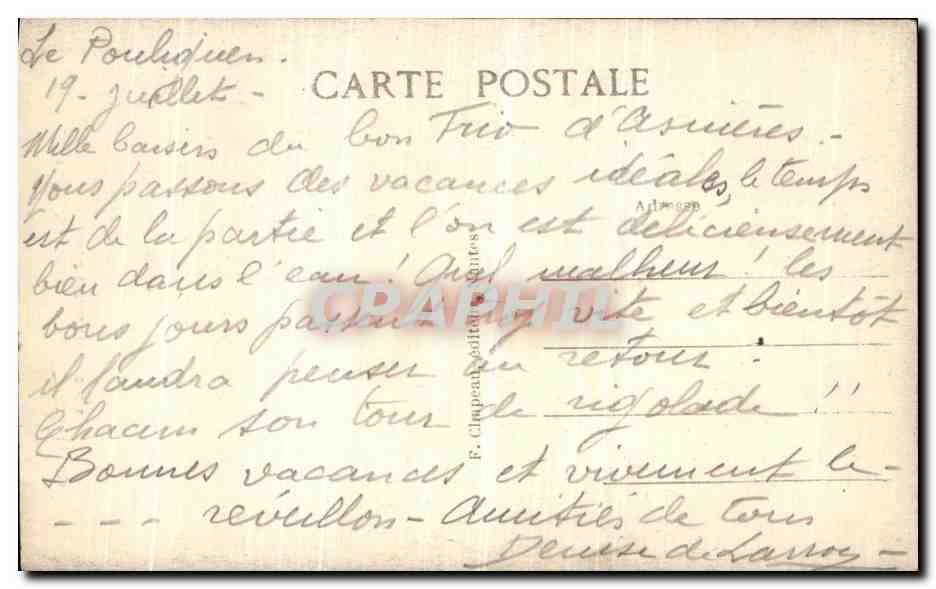 Le Pouliguen.
19 - Juillet -
CARTE POSTALE
Mille baisers du bon Trio d'Asnières -
Nous passons des vacances idéales, le temps
Adresse
est de la partie et l'on est délicieusement
bien dans l'eau! quel malheur! les
bons jours passent trop vite et bientôt
CPAPHIL
il faudra penser au retour.
Chacun son tour de rigolade!!
Bonnes vacances et vivement le -
- - - réveillon - Amitiés de tous
Denise de
F. Chapeau, éditeur, Nantes